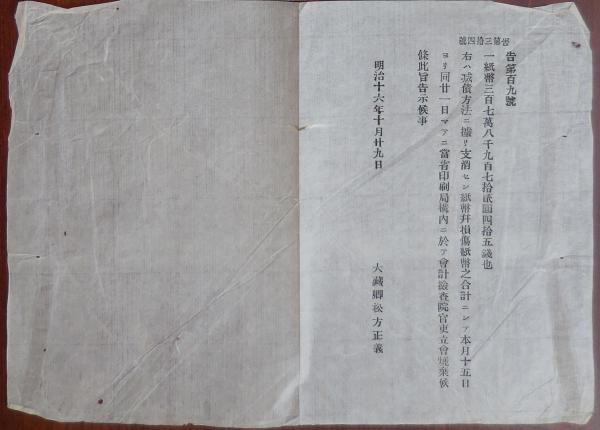 告第三拾四號
告第百九號
一紙幣三百七萬八千九百七拾貳圓四拾五錢也
右ハ減債方法ニ據リ支消セシ紙幣幷損傷紙幣之合計ニシテ本月十五日
ヨリ同廿一日マテニ當省印刷局構內ニ於テ會計檢查院官吏立會燒棄候
條此旨告示候事
明治十六年十月廿九日
大藏卿松方正義